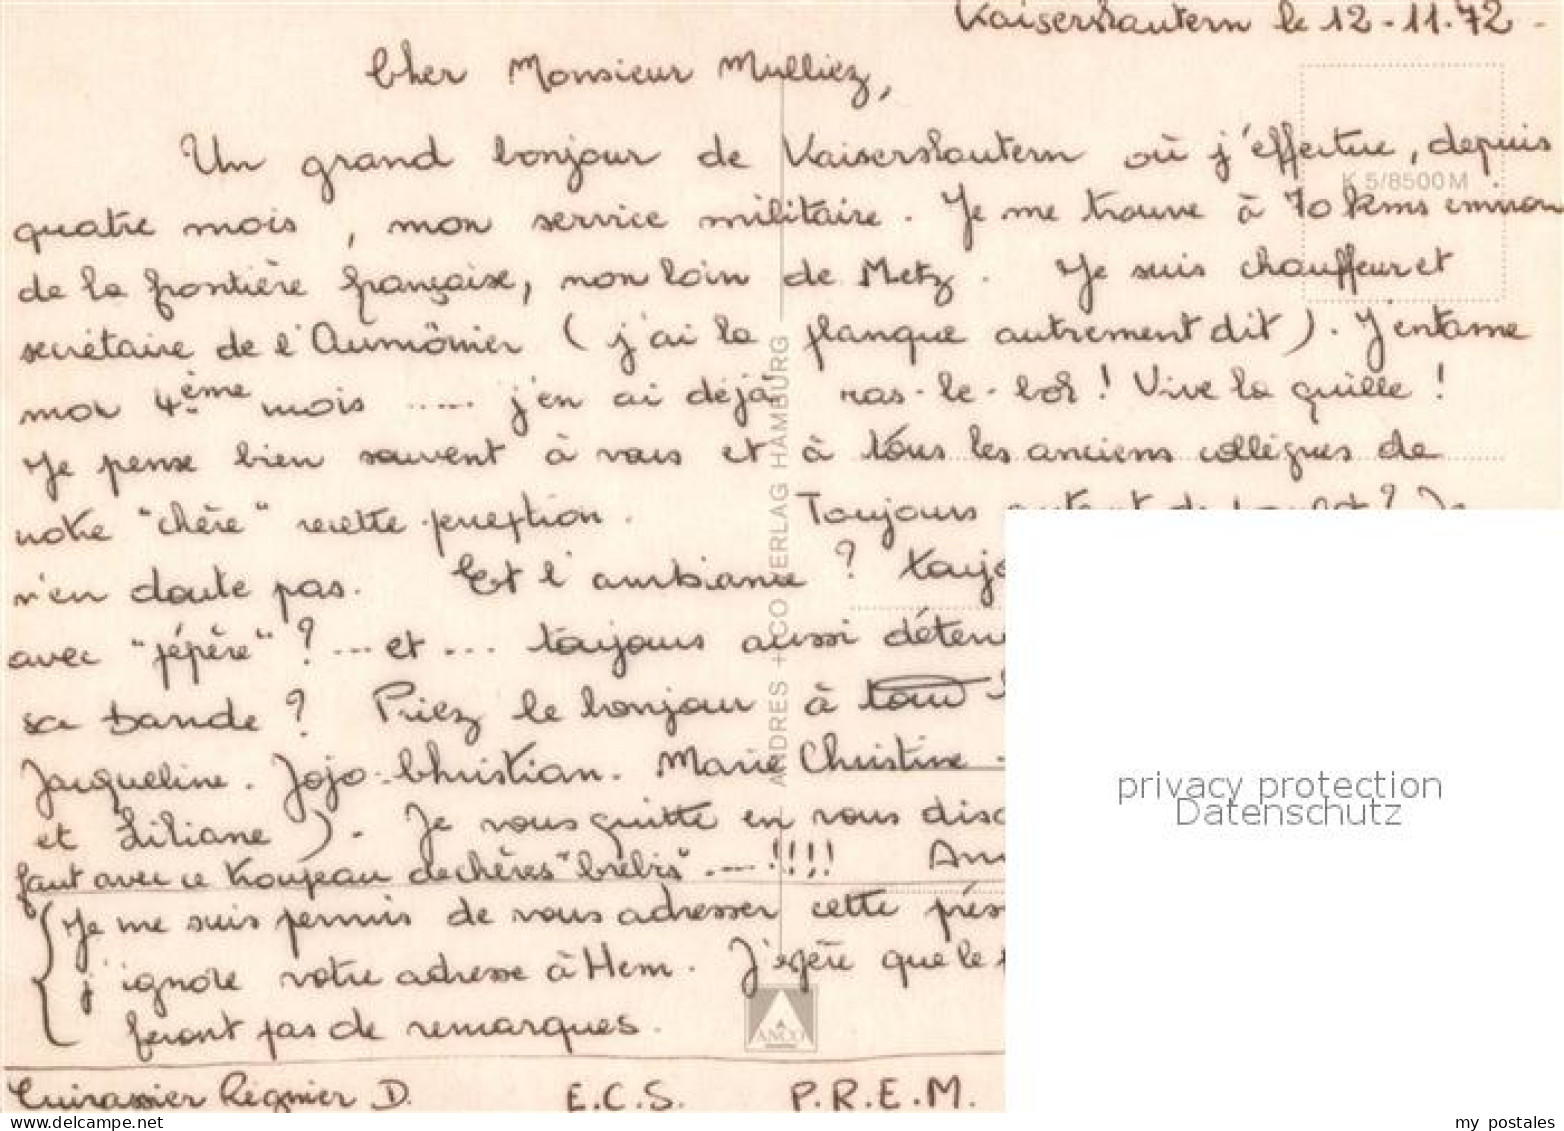 Kaiserslautern le 12-11-72 -
Cher Monsieur Mulliez,
Un grand bonjour de Kaiserslautern où j'effectue, depuis
K 5/8500 M
quatre mois, mon service militaire. Je me trouve à 70 kms environ
de la frontière française, non loin de Metz. Je suis chauffeur et
secrétaire de l'Aumônier (j'ai la planque autrement dit). J'entame
mon 4ème mois ..... j'en ai déjà ras-le-bol! Vive la quille!
Je pense bien souvent à vous et à tous les anciens collègues de
notre "chère" recette-perception. Toujours autant de boulot? Je
n'en doute pas. Et l'ambiance? Toujo
avec "pépère"? ... et ... toujours aussi déten
sa bande? Priez le bonjour à tous
Jacqueline. Jojo. Christian. Marie Christine -
et Liliane). Je vous quitte en vous disa
faut avec ce troupeau de chères "brebis" ....!!!! Ami
Je me suis permis de vous adresser cette prés
j'ignore votre adresse à Hem. J'espère que le
feront pas de remarques.
Cuirassier Régnier D. E.C.S. P.R.E.M.
ANDRES + CO VERLAG HAMBURG
ANCO
privacy protection
Datenschutz
www.delcampe.net
my_postales